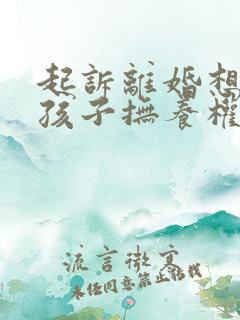 起訴離婚想
孩子撫養權
流言微寞
未经同意禁止转载